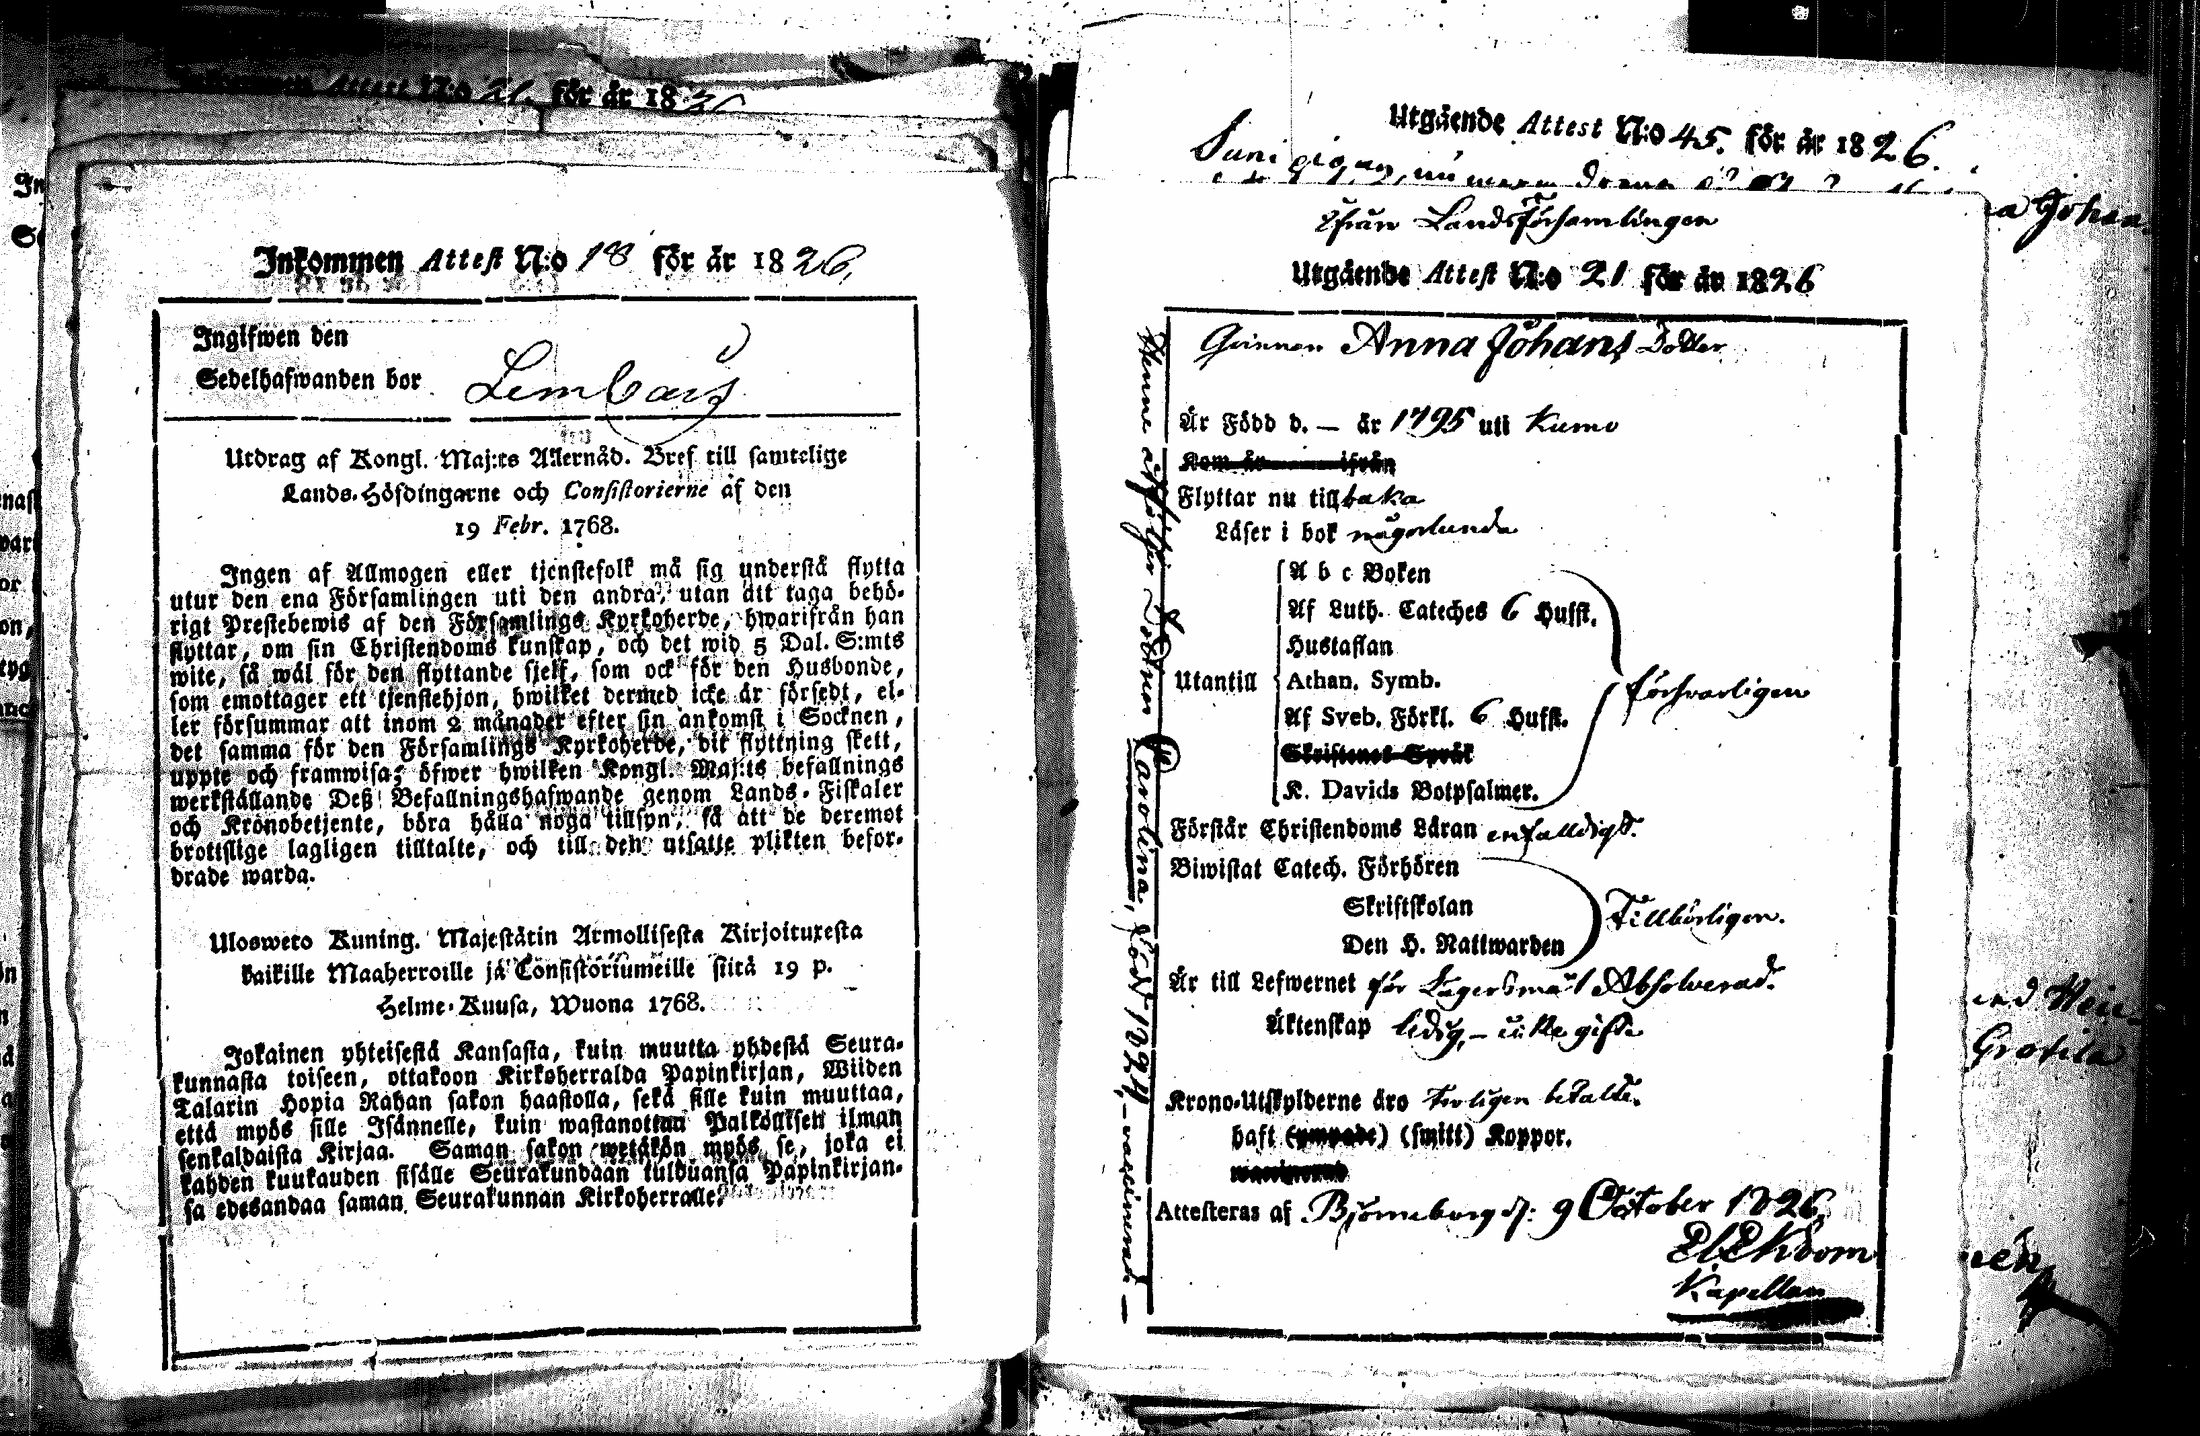 Inkommen Attest N:o 21. för år 1826
Inkommen Attest N:o 18 för år 1826,
Ingifwen den
Sedelhafwanden bor
Utdrag af Kongl. Maj:ts Allernåd. Bref till samtelige
Lands-Höfdingarne och Consistorierne af den
19 Febr. 1768.
Ingen af Allmogen eller tjenstefolk må sig understå flytta
utur den ena Församlingen uti den andra, utan att taga behö-
rigt Prestebewis af den Församlings Kyrkoherde, hwarifrån han
flyttar, om sin Christendoms kunskap, och det wid 5 Dal. S:mts
wite, så wäl för den flyttande sjelf, som ock för den Husbonde,
som emottager ett tjenstehjon, hwilket dermed icke är försedt, el-
ler försummar att inom 2 månader efter sin ankomst i Socknen,
det samma för den Församlings Kyrkoherde, dit flyttning skett,
uppte och framwisa; öfwer hwilken Kongl. Maj:ts befallnings
werkställande Deß Befallningshafwande genom Lands-Fiskaler
och Kronobetjente, böra hålla noga tillsyn, så att de deremot
brottslige lagligen tilltalte, och till den utsatte plikten befor-
drade warda.
Ulosweto Kuning. Majestätin Armollisesta Kirjoituxesta
kaikille Maaherroille ja Consistoriumeille siitä 19 p.
Helme-Kuusa, Wuona 1768.
Jokainen yhteisestä Kansasta, kuin muutta yhdestä Seura-
kunnasta toiseen, ottakoon Kirkoherralda Papinkirjan, Wiiden
Talarin Hopia Rahan sakon haastolla, sekä sille kuin muuttaa,
että myös sille Isännelle, kuin wastanottaa Palkollisen ilman
senkaldaista Kirjaa. Saman sakon wetäkön myös se, joka ei
kahden kuukauden sisälle Seurakundaan tulduansa Papinkirjan-
sa edesandaa saman Seurakunnan Kirkoherralle.
Utgående Attest N:o 45. för år 1826.
ifrån Landsförsamlingen
Utgående Attest N:o 21 för år 1826
Qvinnan Anna Johans Dotter
Är Född d. — år 1795 uti Kumo
Kom år ifrån
Flyttar nu tillbaka
Läser i bok någorlunda
A b c Boken
Af Luth. Cateches 6 Hufst.
Hustaflan
Utantill Athan. Symb.
Af Sveb. Förkl. 6 Hufst.
Skriftenes Språk
K. Davids Botpsalmer.
försvarligen
Förstår Christendoms Läran enfaldigt.
Biwistat Catech. Förhören
Skriftskolan
Den H. Nattwarden
Tillbörligen.
Är till Lefwernet för Lägersmål Absolverad.
Äktenskap ledig, – icke gift
Krono-Utskylderne äro troligen betalde.
haft (ympade) (smitt) Koppor.
vaccinerad
Attesteras af Björneborg d: 9 October 1826,
Kapellan
Henne åtföljer Dottren Carolina, född 1824, – vaccinerad –